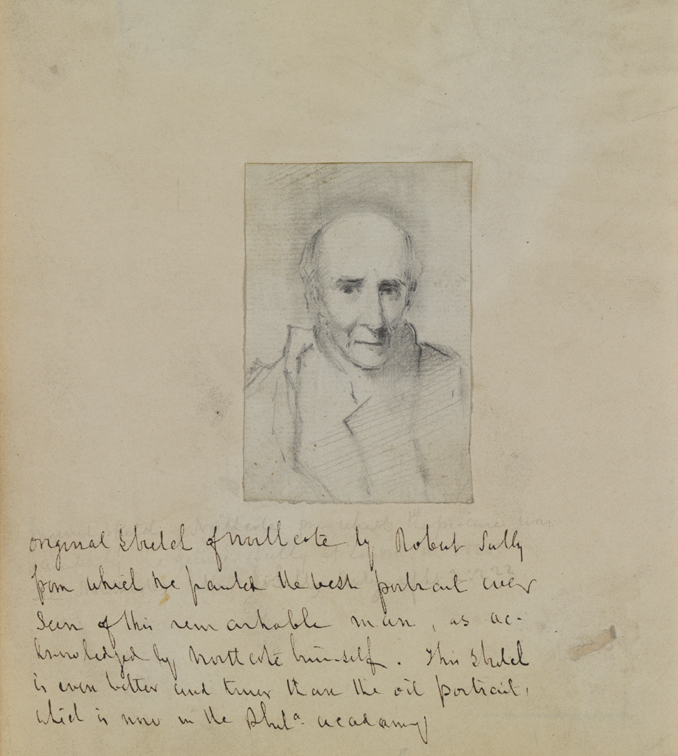 original Sketch of Northcote by Robert Sully
from which he painted the best portrait ever
seen of this remarkable man, as ac-
knowledged by Northcote himself. This Sketch
is even better and truer than the oil portrait,
which is now in the Phila. academy